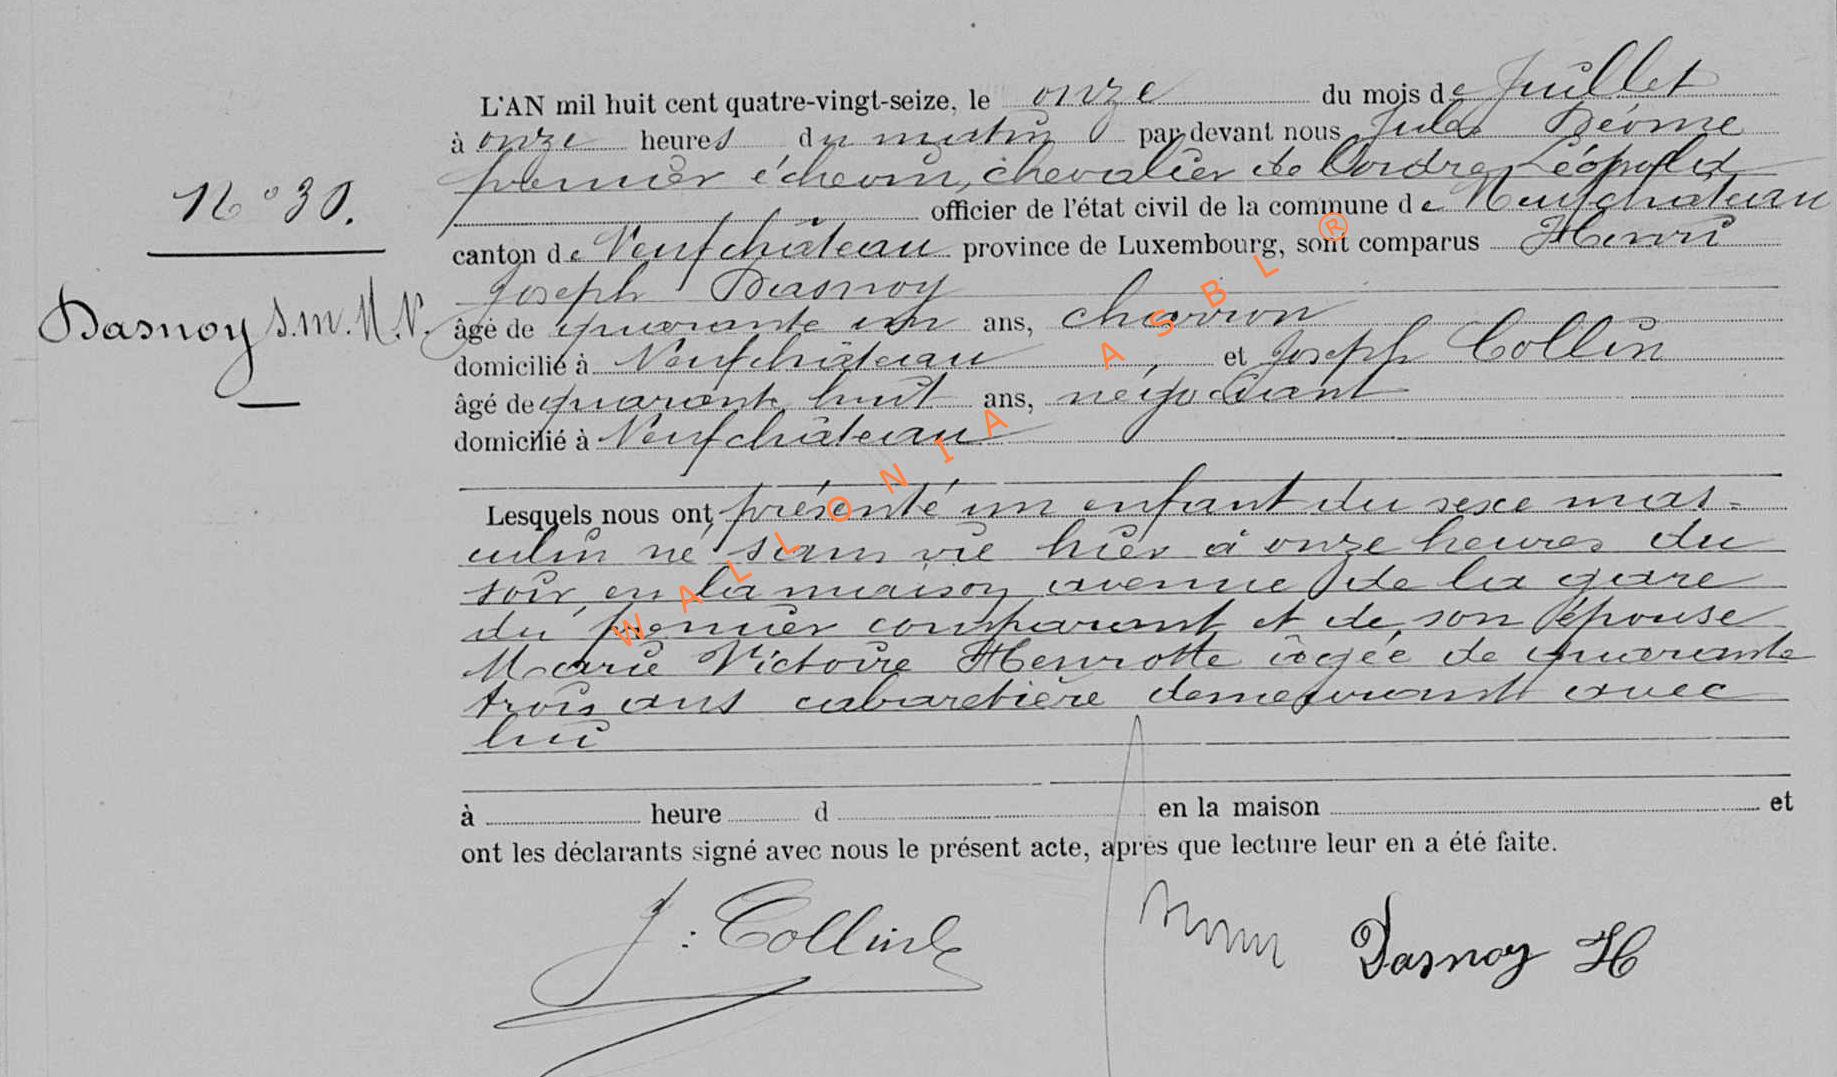 L'AN mil huit cent quatre-vingt-seize, le onze du mois de Juillet
à onze heures du matin par devant nous Jules Déome
premier échevin, chevalier de l'ordre Léopold
officier de l'état civil de la commune de Neufchâteau
N° 30.
canton de Neufchâteau province de Luxembourg, sont comparus Henri
Joseph Dasnoy
Dasnoy s.m. N. V.
âgé de quarante un ans, charron
domicilié à Neufchâteau et Joseph Collin
âgé de quarante huit ans, négociant
domicilié à Neufchâteau
Lesquels nous ont présenté un enfant du sexe mas-
culin né sans vie hier à onze heures du
soir, en la maison avenue de la gare
du premier comparant et de son épouse
Marie Victoire Henrotte âgée de quarante
trois ans cabaretière demeurant avec
lui
à heure d en la maison et
ont les déclarants signé avec nous le présent acte, après que lecture leur en a été faite.
J: Collin
Dasnoy H
WALLONIA ASBL ®